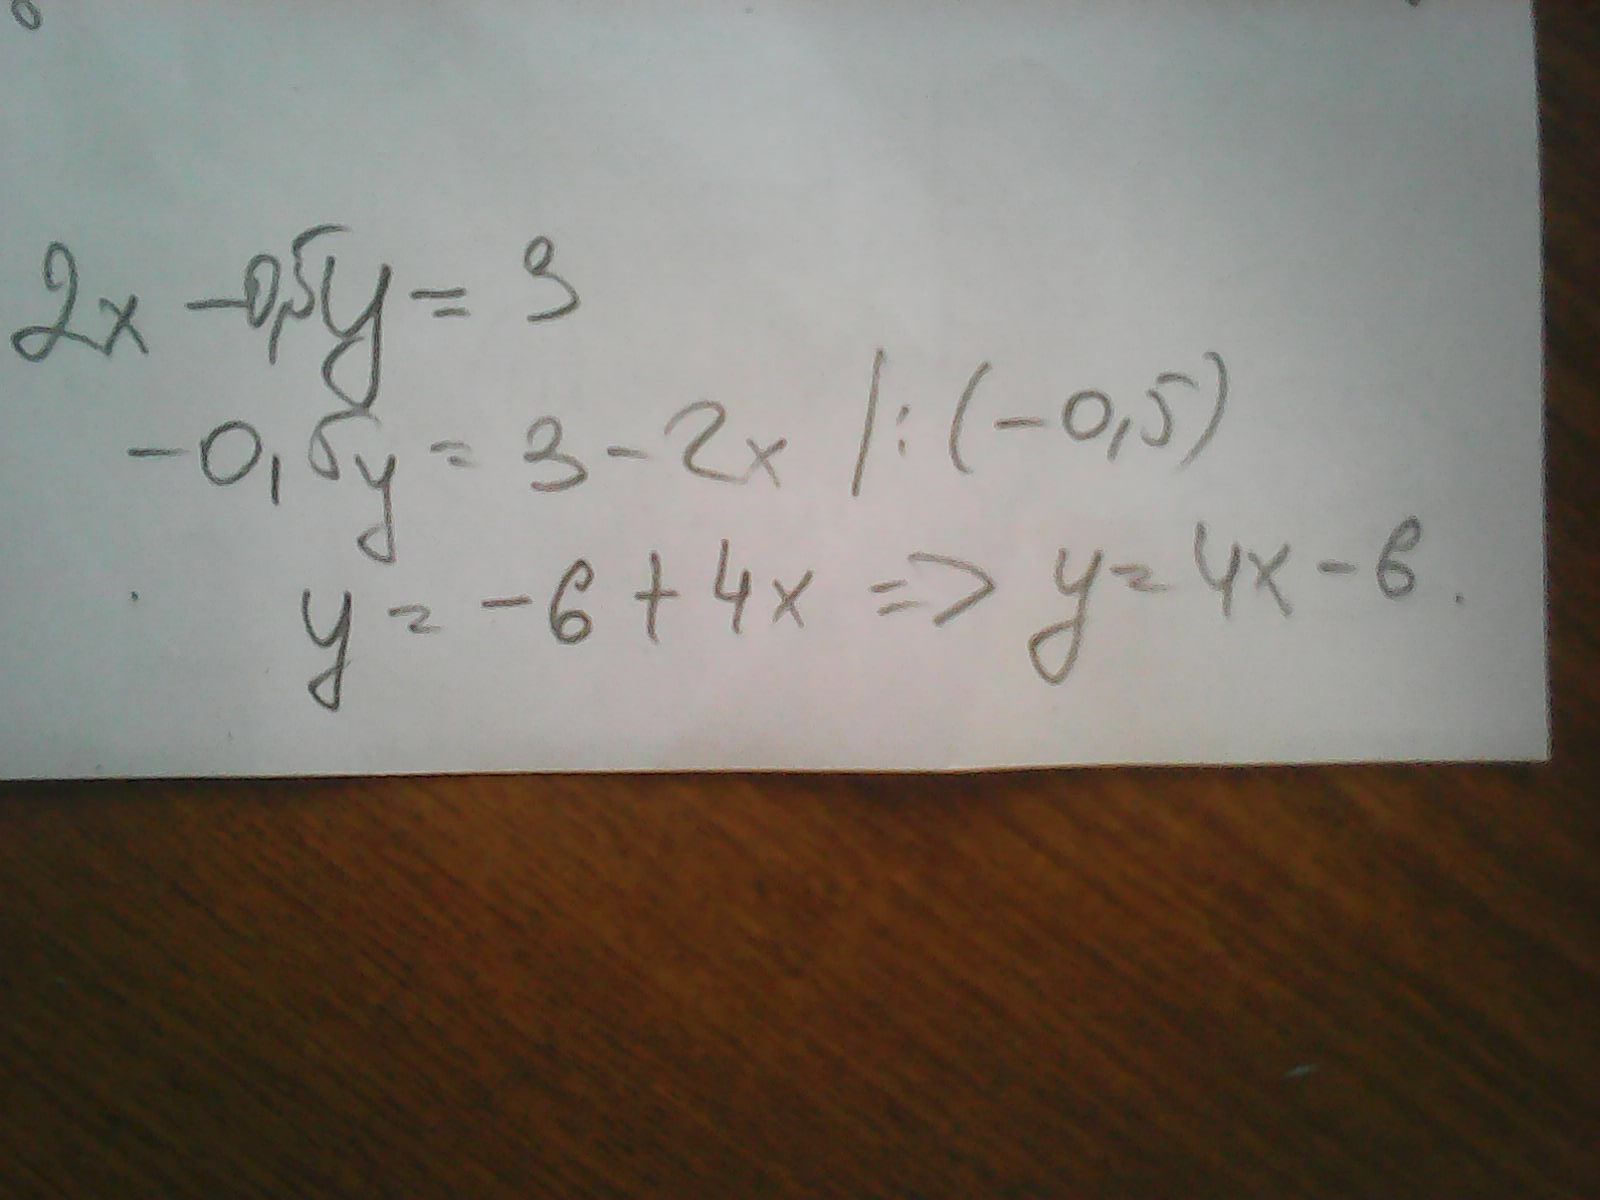 2x -0,5y = 3
-0,5y = 3 - 2x /: (-0,5)
y = -6 + 4x => y = 4x - 6.